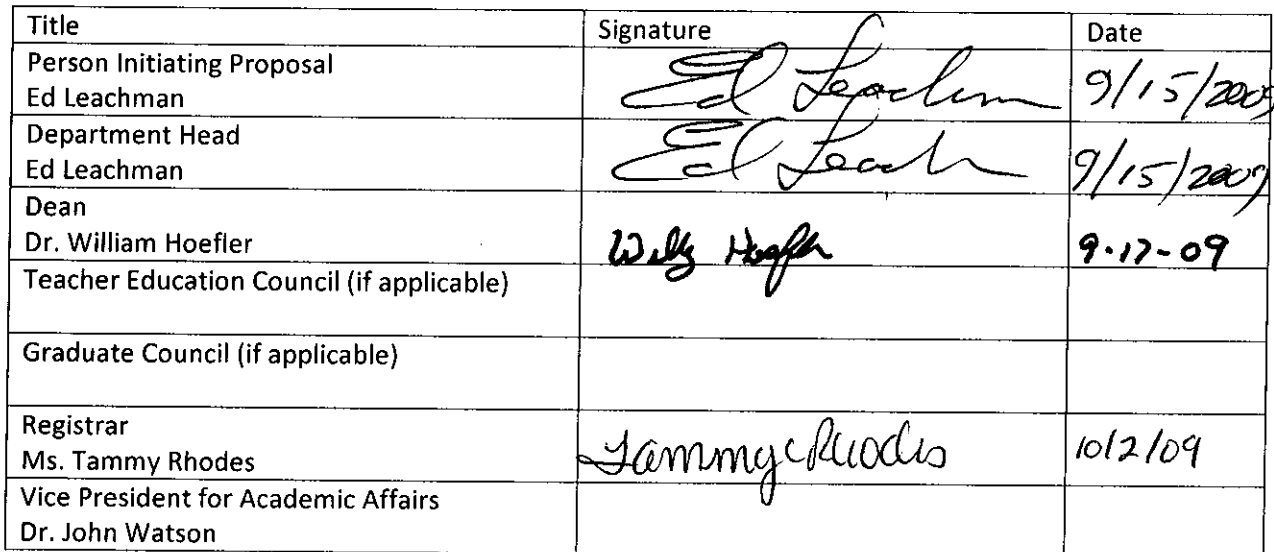 Title Signature Date
Person Initiating Proposal
Ed Leachman Ed Leachman 9/15/2009
Department Head
Ed Leachman Ed Leach 9/15/2009
Dean
Dr. William Hoefler Willy Hoefler 9-17-09
Teacher Education Council (if applicable)
Graduate Council (if applicable)
Registrar
Ms. Tammy Rhodes Tammy Rhodes 10/2/09
Vice President for Academic Affairs
Dr. John Watson